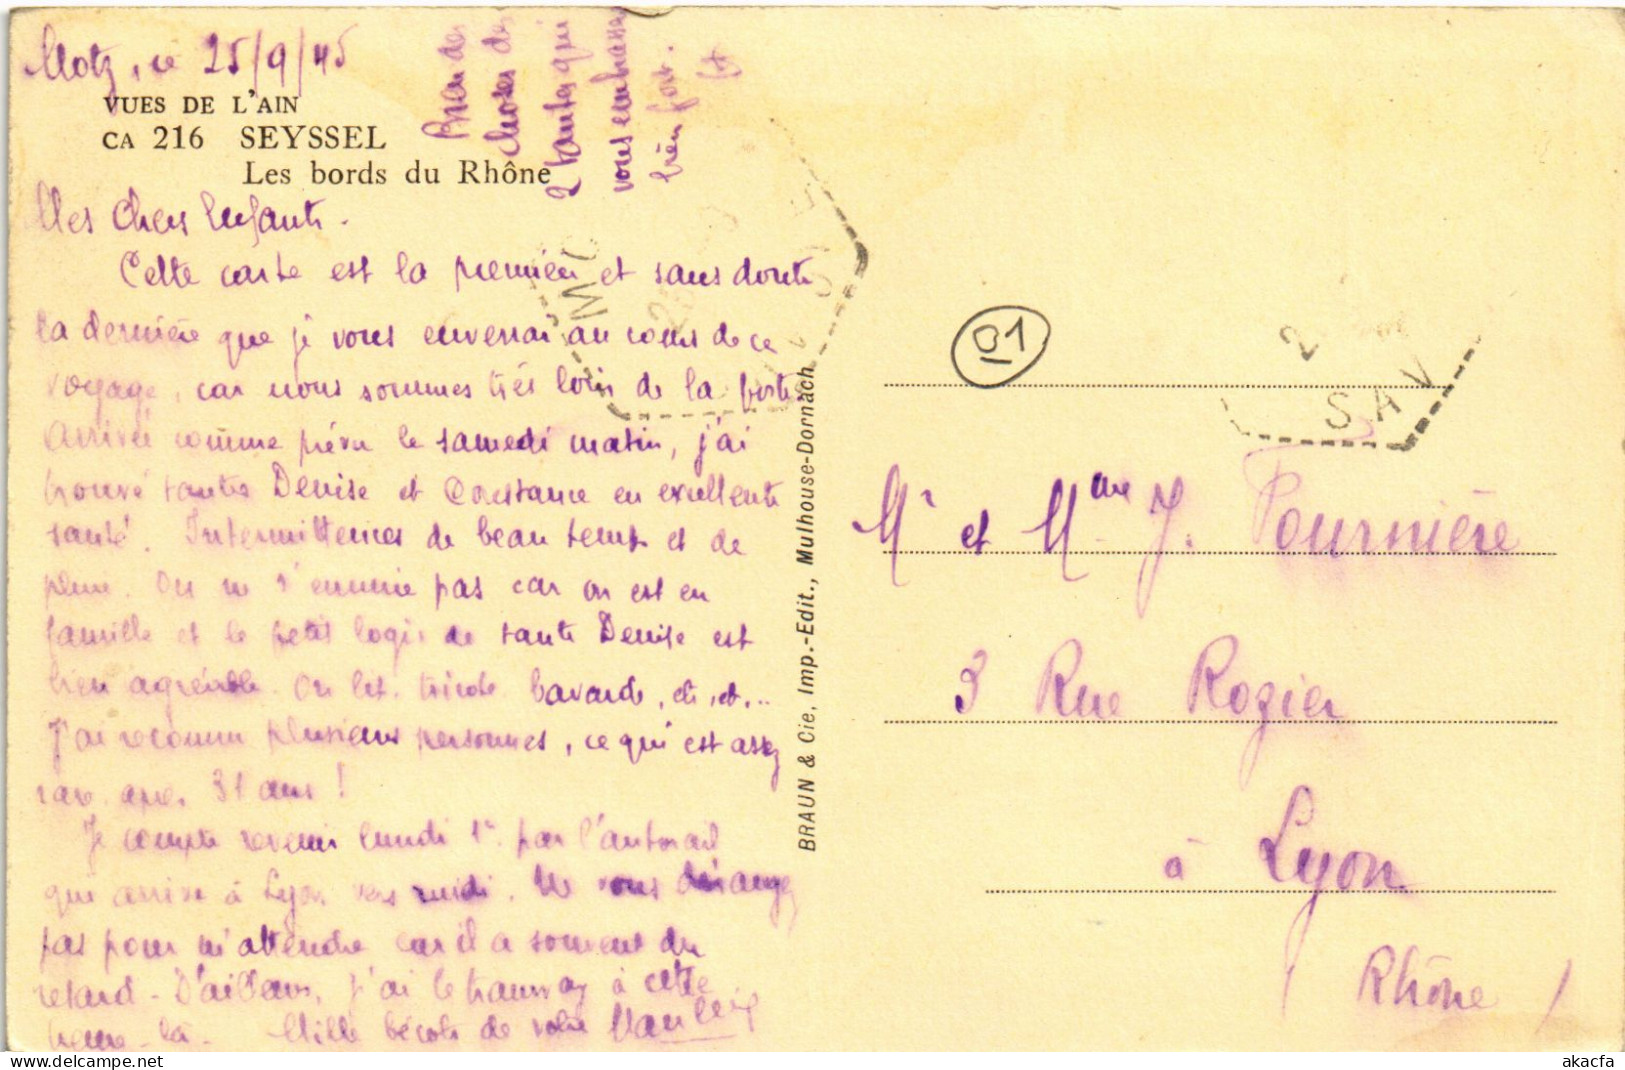 Motz, ce 25/9/45
VUES DE L'AIN
CA 216 SEYSSEL
Les bords du Rhône
Bien des
choses des
2 tantes qui
vous embrassent
bien fort.
Mes Chers Enfants.
Cette carte est la première et sans doute
la dernière que je vous enverrai au cours de ce
voyage, car nous sommes très loin de la poste.
Arrivée comme prévu le samedi matin, j'ai
trouvé tantes Denise et Constance en excellente
santé. Intermittences de beau temps et de
pluie. On ne s'ennuie pas car on est en
famille et le petit logis de tante Denise est
bien agréable. On lit, tricote, bavarde, etc, etc...
J'ai reconnu plusieurs personnes, ce qui est assez
rare après 31 ans !
Je compte revenir lundi 1er par l'autorail
qui arrive à Lyon vers midi. Ne vous dérangez
pas pour m'attendre car il a souvent du
retard - D'ailleurs, j'ai le tramway à cette
heure-là. Mille bécots de votre
BRAUN & Cie, Imp.-Edit., Mulhouse-Dornach
01
MO
2
SAV
Mr et Mme J. Fournière
3 Rue Rozier
à Lyon
Rhône
akacfa